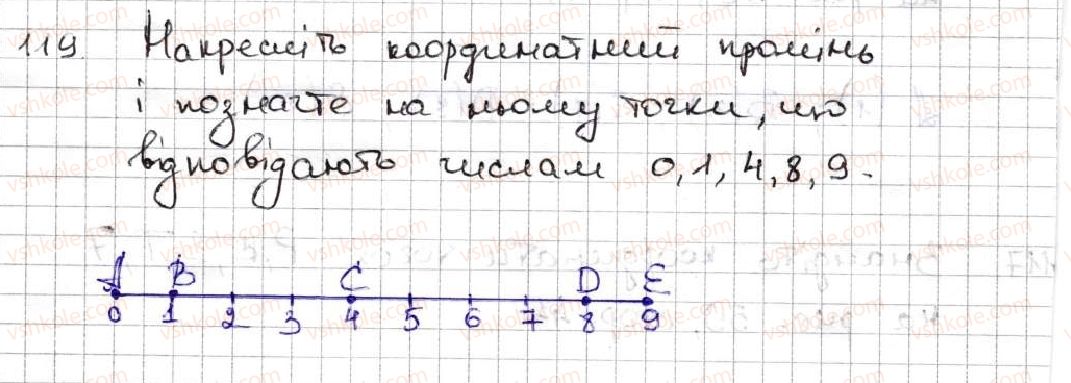 119. Накресліть координатний промінь
і позначте на ньому точки, що
відповідають числам 0, 1, 4, 8, 9.
A B C D E
0 1 2 3 4 5 6 7 8 9